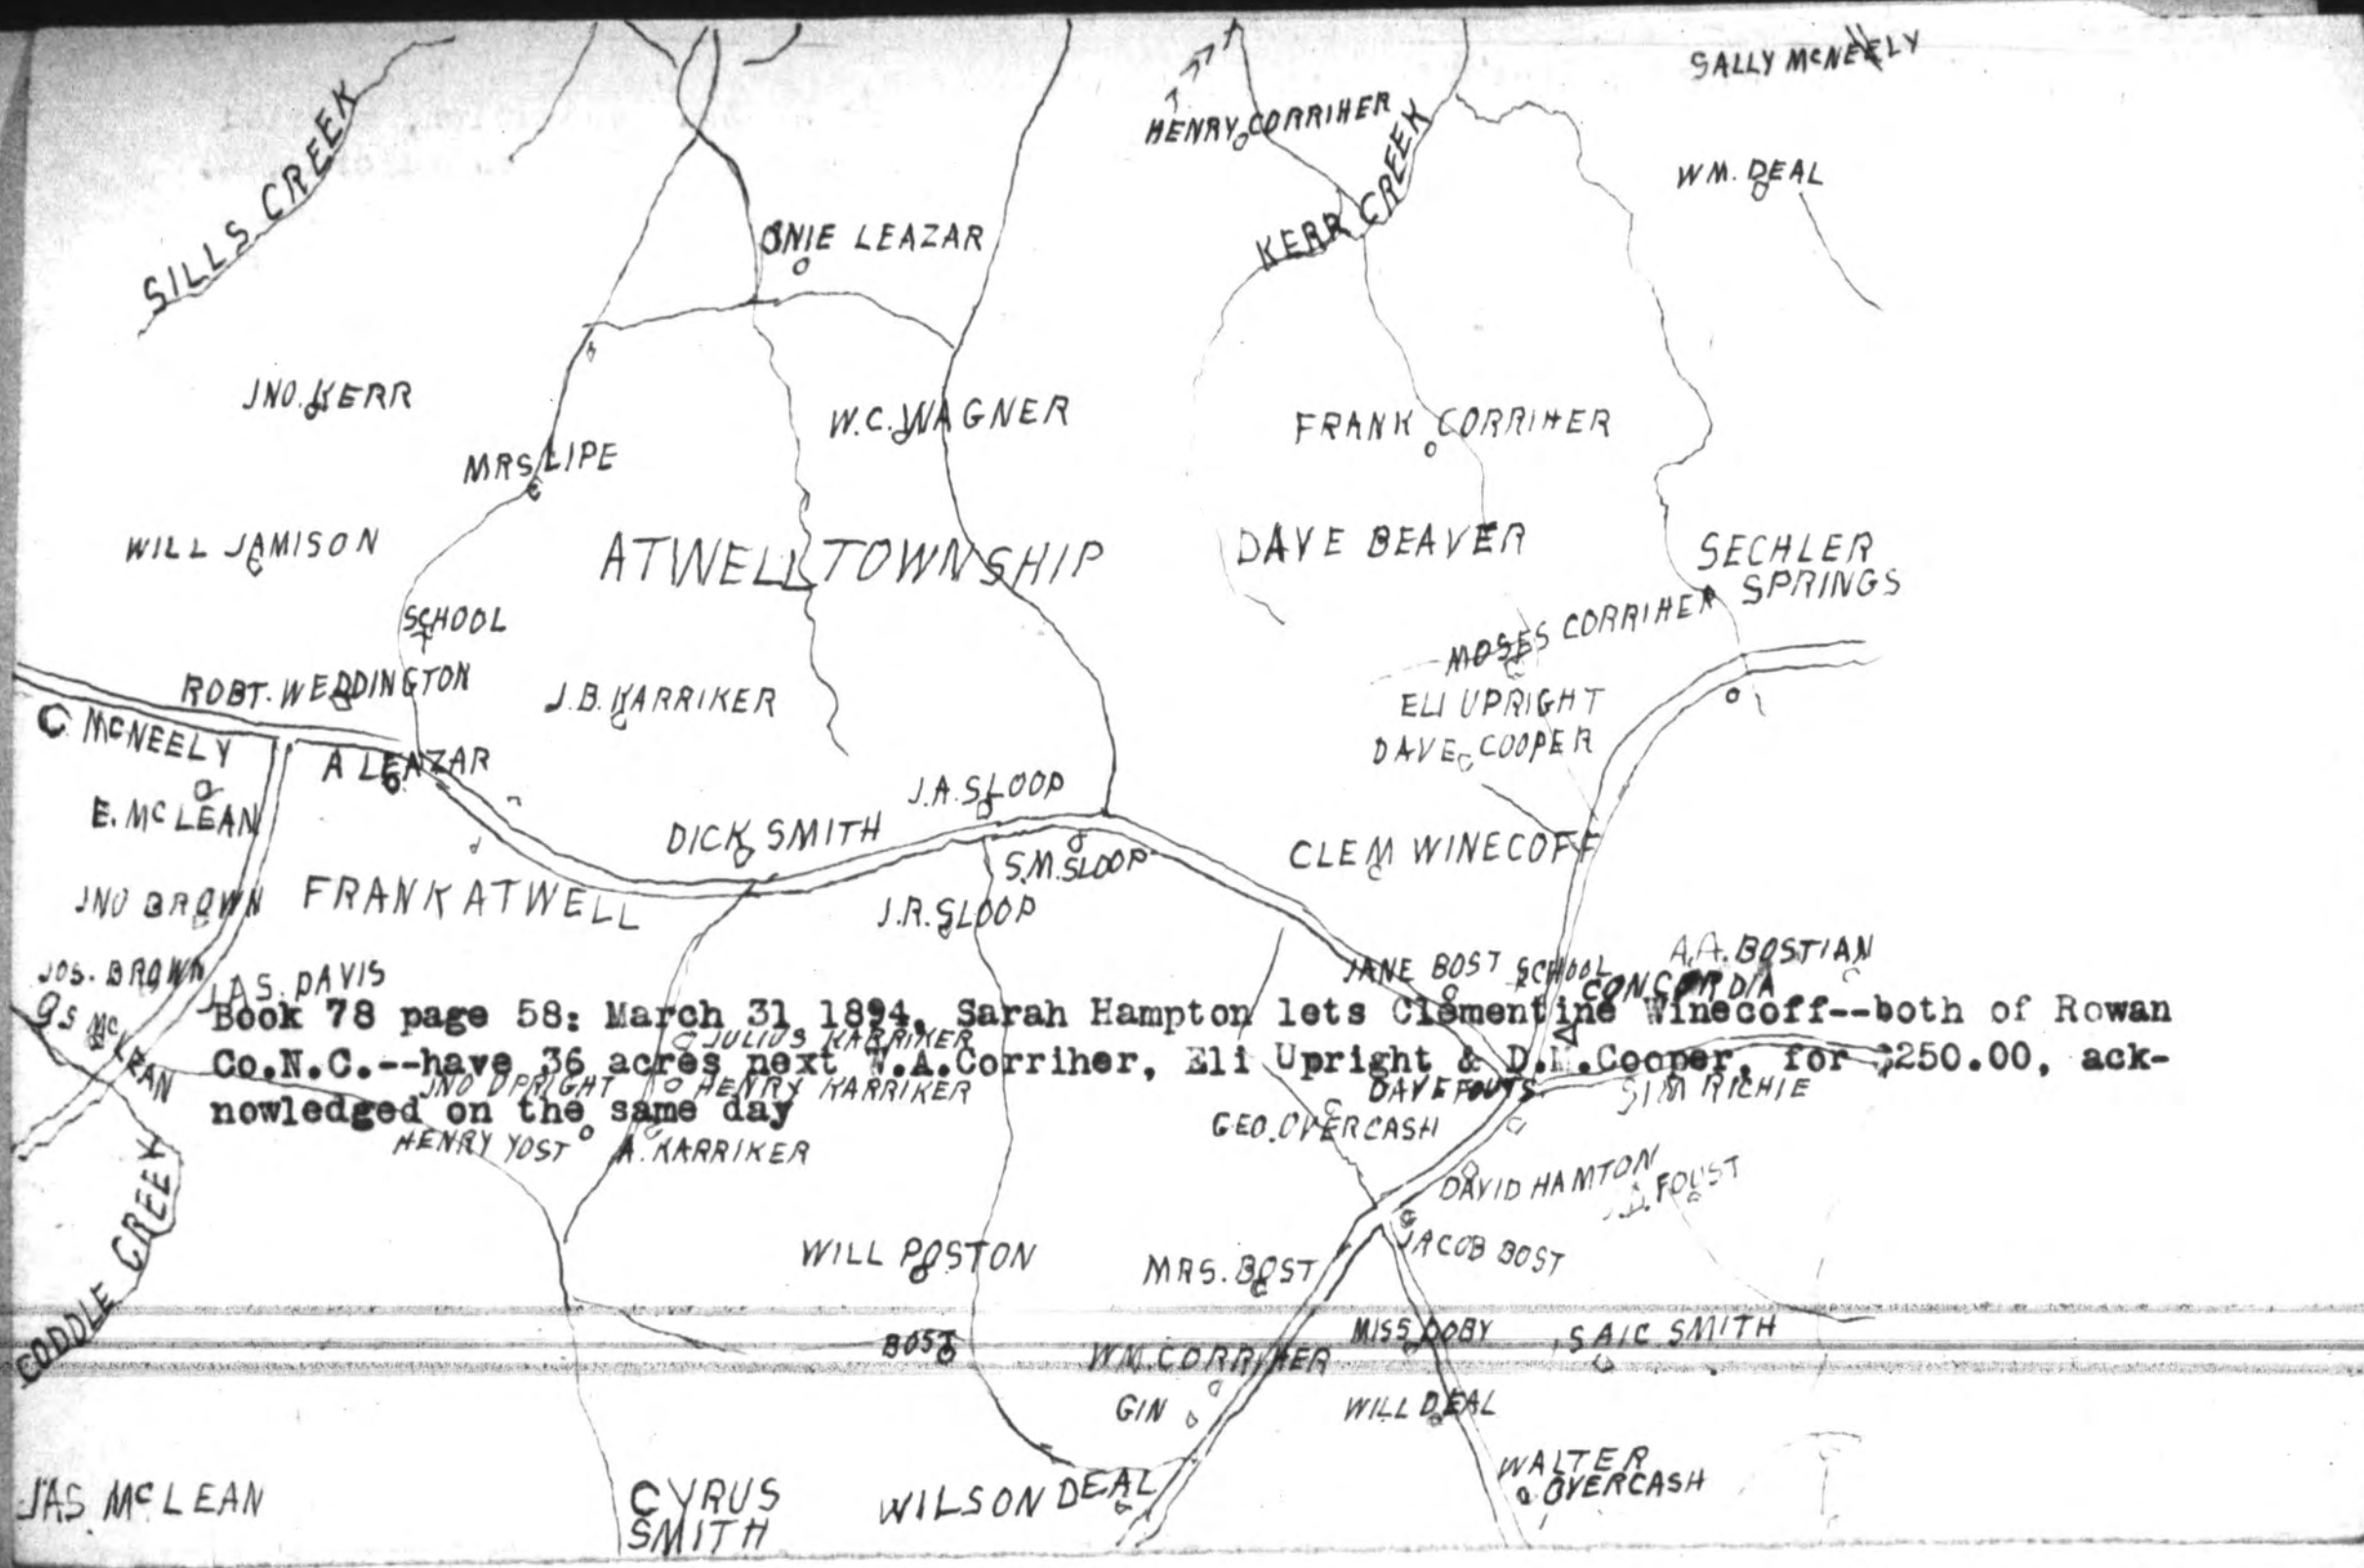 SALLY MCNEELY
HENRY CORRIHER
SILLS CREEK
KERR CREEK
WM. DEAL
ONIE LEAZAR
JNO. KERR
W.C. WAGNER
FRANK CORRIHER
MRS LIPE
WILL JAMISON
ATWELL TOWNSHIP
DAVE BEAVER
SECHLER
SPRINGS
SCHOOL
MOSES CORRIHER
ROBT. WEDDINGTON
J.B. KARRIKER
ELI UPRIGHT
C. MCNEELY
DAVE COOPER
A LEAZAR
E. MCLEAN
J.A. SLOOP
DICK SMITH
S.M. SLOOP
CLEM WINECOFF
JNO BROWN
FRANK ATWELL
J.R. SLOOP
JOS. BROWN
JAS. DAVIS
JANE BOST SCHOOL
A.A. BOSTIAN
CONCORDIA
Book 78 page 58: March 31 1894, Sarah Hampton lets Clementine Winecoff--both of Rowan
JULIUS KARRIKER
Co.N.C.--have 36 acres next W.A.Corriher, Eli Upright & D.M.Cooper, for $250.00, ack-
MCLEAN
JNO UPRIGHT
HENRY KARRIKER
DAVE FOUTS
SIM RICHIE
nowledged on the same day
HENRY YOST
A. KARRIKER
GEO. OVERCASH
DAVID HAMTON
FOUST
CODDLE CREEK
WILL POSTON
MRS. BOST
JACOB BOST
BOST
WM CORRIHER
MISS DOBY
SAIC SMITH
GIN
WILL DEAL
JAS. MCLEAN
CYRUS
SMITH
WILSON DEAL
WALTER
OVERCASH